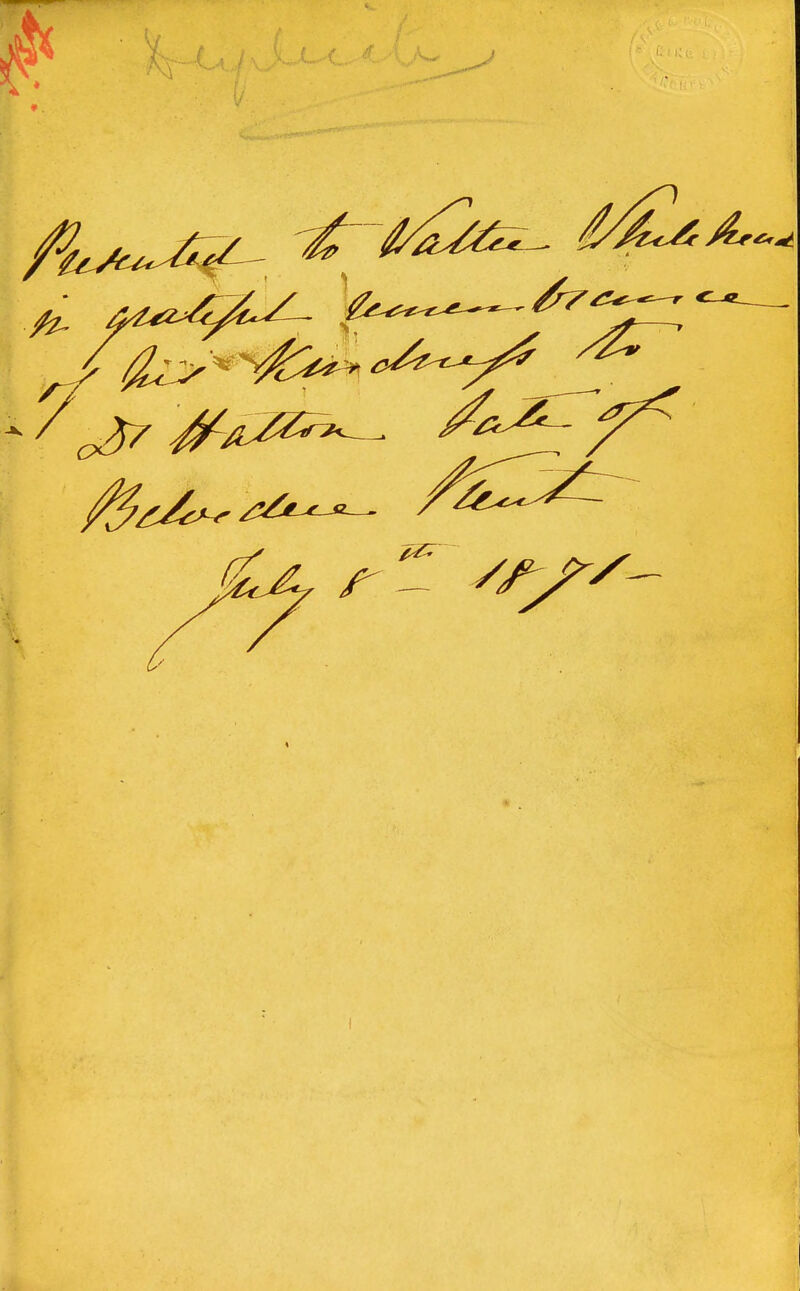 Duplicate
Presented to Walter Whitehead
in grateful remembrance
of his Kindness to
Dr Hatton late of
Belvedere Kent
July 8th 1871-